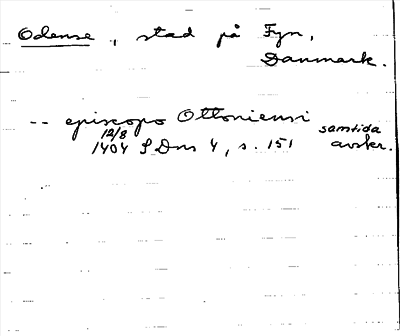 Odense, stad på Fyn,
Danmark.
-- episcopo Ottoniensi
12/8 1404 SDns 4, s. 151 samtida avskr.